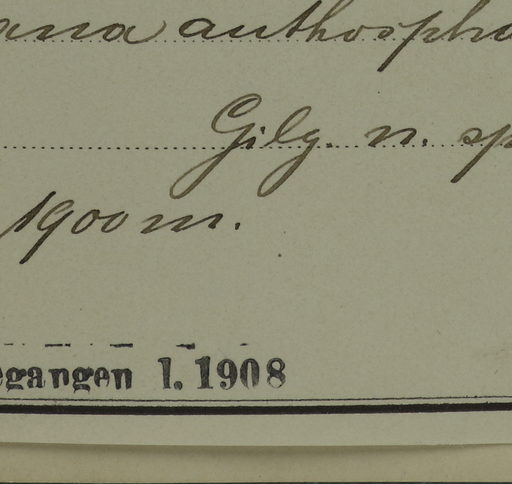 ana anthospha
Gilg. n. sp
1900 m.
egangen 1. 1908